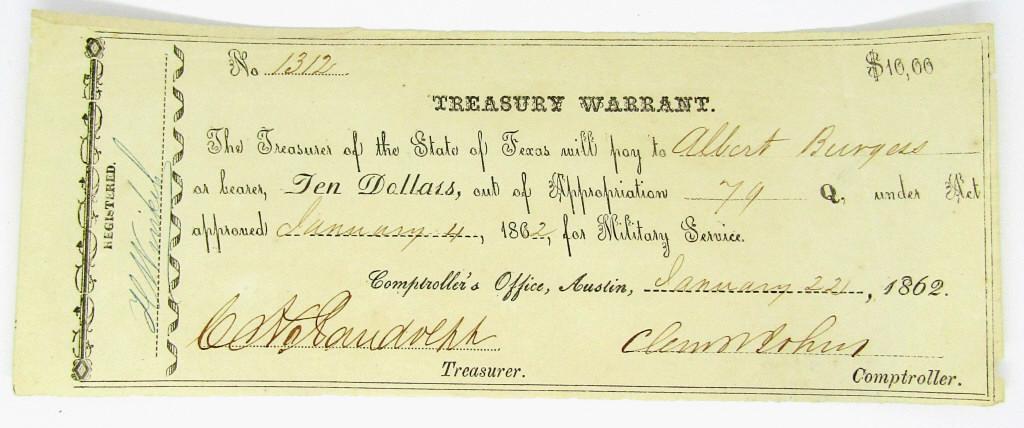 No 1312 $10,00
TREASURY WARRANT.
The Treasurer of the State of Texas will pay to Albert Burgess
or bearer, Ten Dollars, out of Appropriation 79 Q, under Act
approved January 4, 1862, for Military Service.
Comptroller's Office, Austin, January 22, 1862.
C H Randolph Clem R Johns
Treasurer. Comptroller.
REGISTERED.